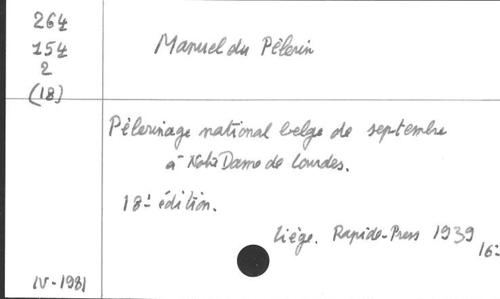 264
154
2
(18)
Manuel du Pèlerin
Pèlerinage national belge de septembre
à Notre Dame de Lourdes.
18e édition.
Liège. Rapide-Press 1939
16°
IV-1981